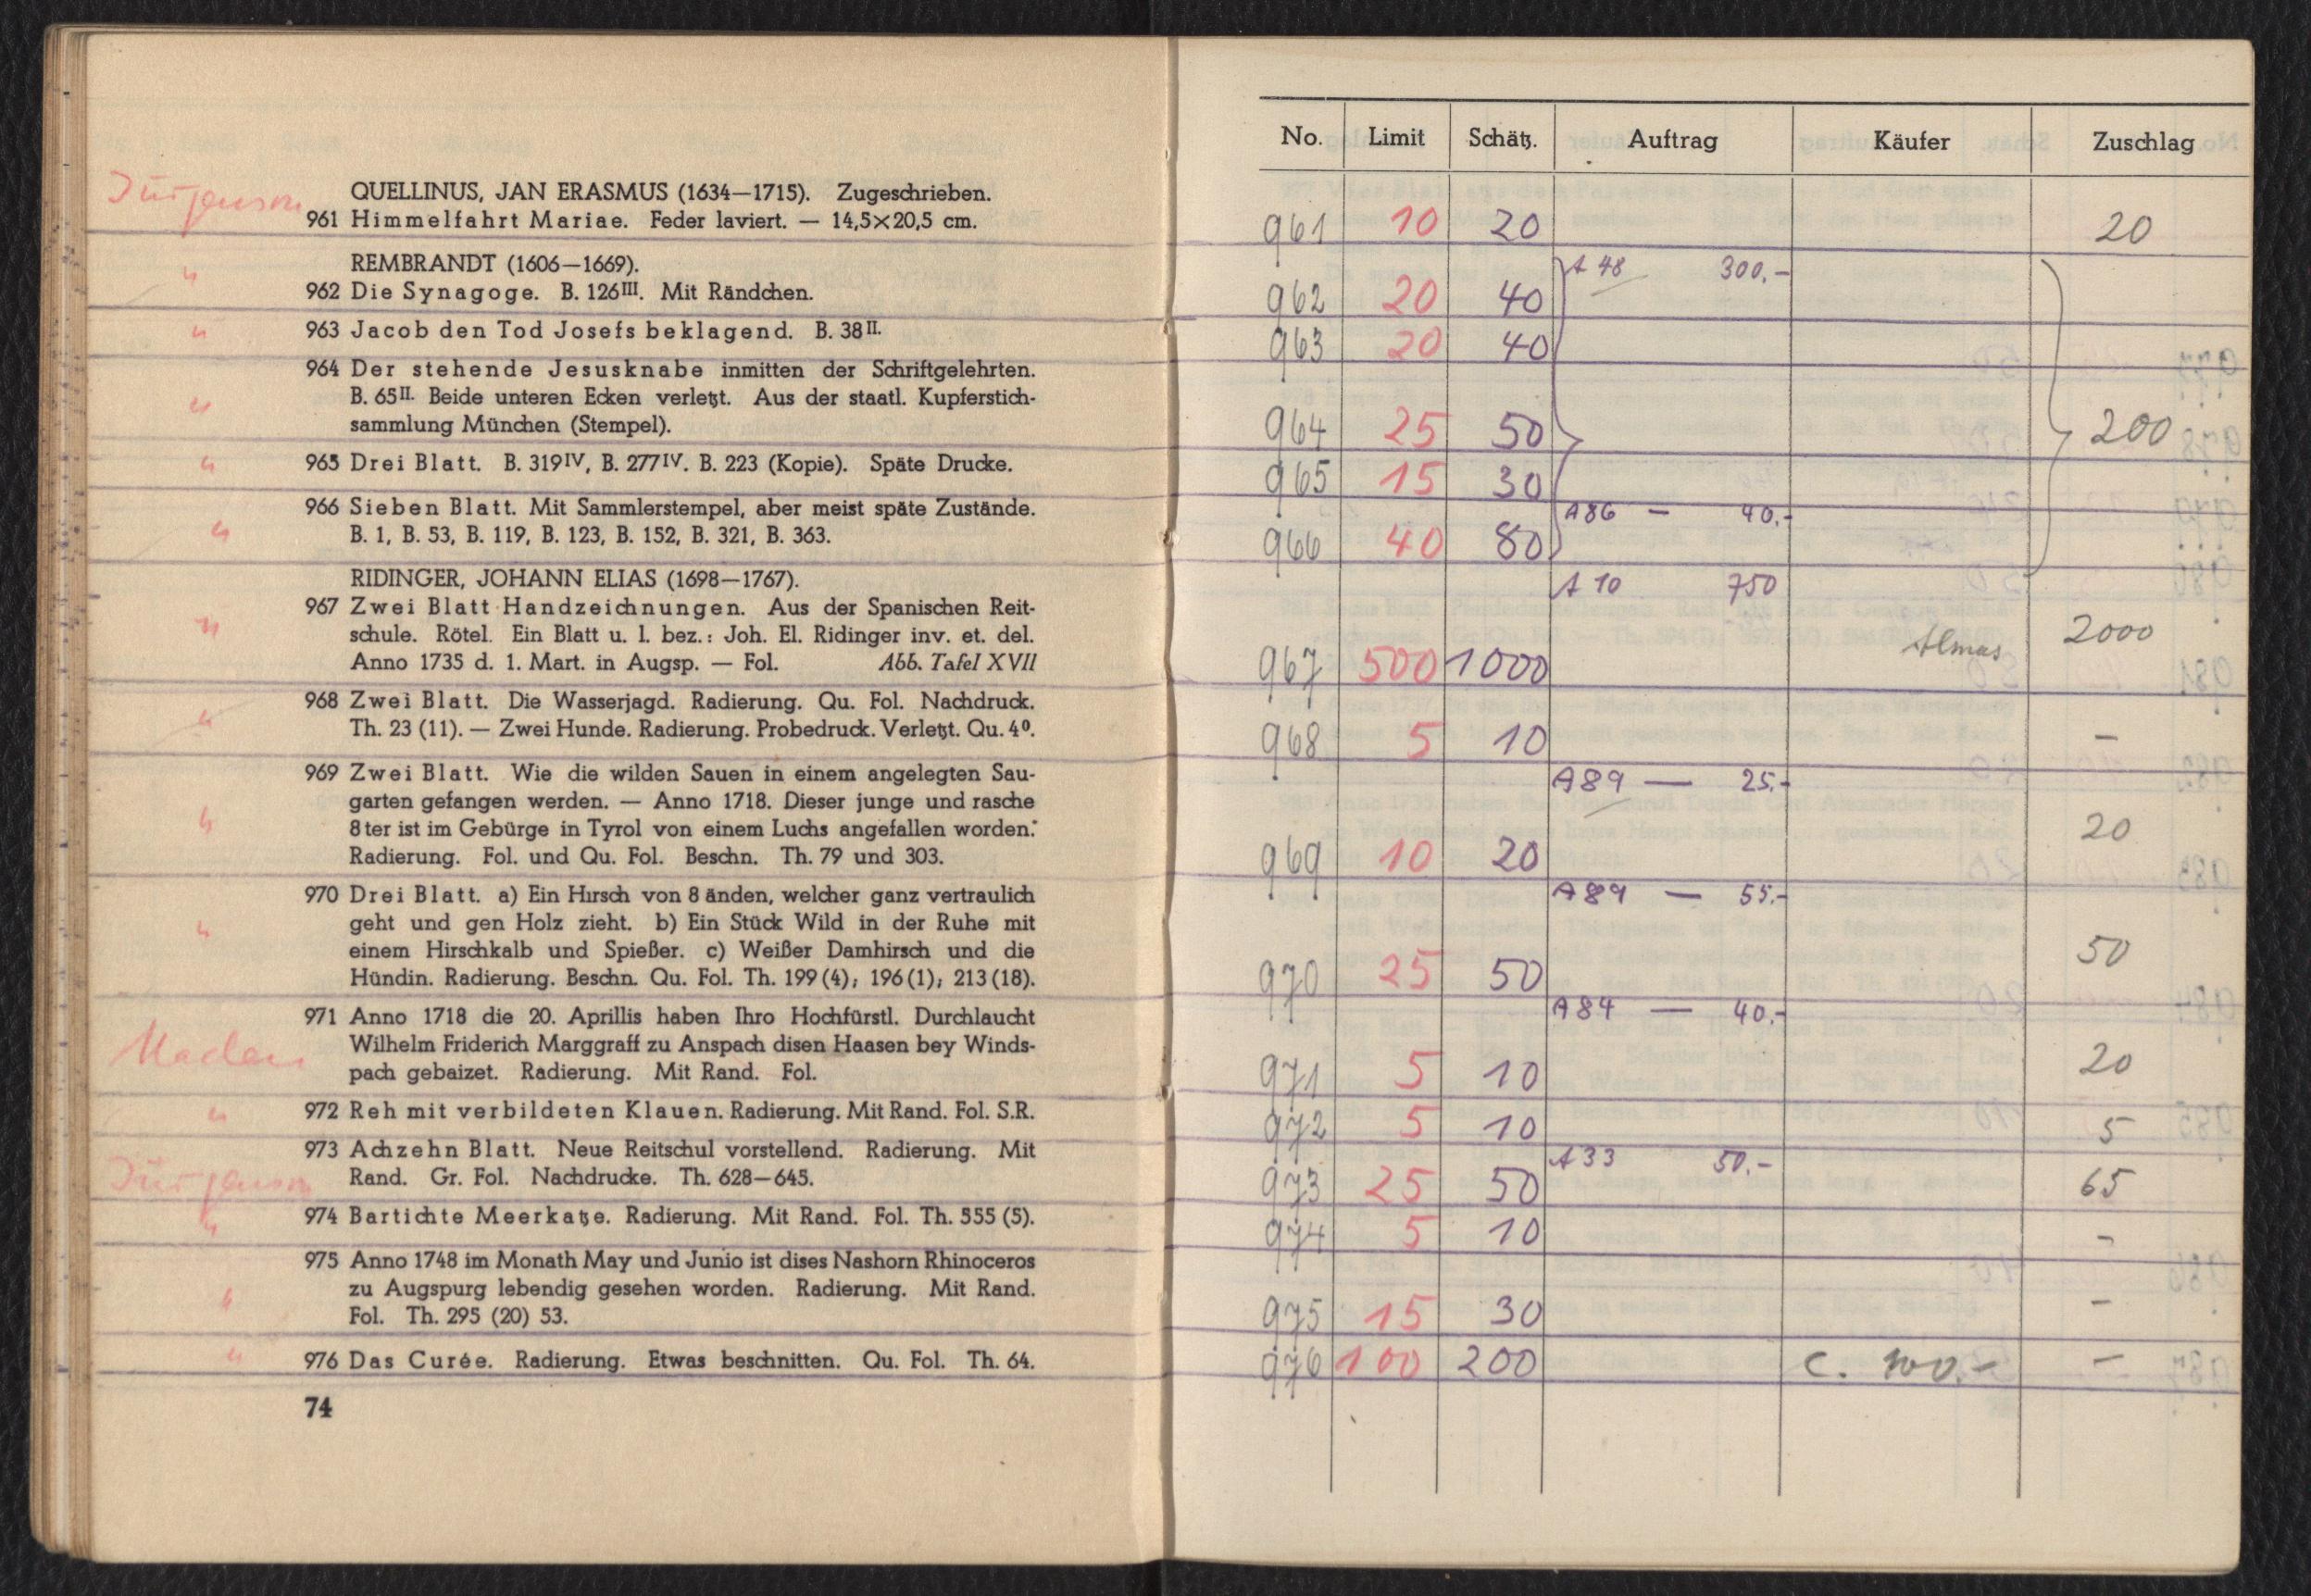 QUELLINUS, JAN ERASMUS (1634—1715). Zugeschrieben.
961 Himmelfahrt Mariae. Feder laviert. — 14,5×20,5 cm.
REMBRANDT (1606—1669).
"
962 Die Synagoge. B. 126III. Mit Rändchen.
" 963 Jacob den Tod Josefs beklagend. B. 38II.
964 Der stehende Jesusknabe inmitten der Schriftgelehrten.
" B. 65II. Beide unteren Ecken verletzt. Aus der staatl. Kupferstich-
sammlung München (Stempel).
" 965 Drei Blatt. B. 319IV, B. 277IV. B. 223 (Kopie). Späte Drucke.
966 Sieben Blatt. Mit Sammlerstempel, aber meist späte Zustände.
" B. 1, B. 53, B. 119, B. 123, B. 152, B. 321, B. 363.
RIDINGER, JOHANN ELIAS (1698—1767).
967 Zwei Blatt Handzeichnungen. Aus der Spanischen Reit-
" schule. Rötel. Ein Blatt u. l. bez.: Joh. El. Ridinger inv. et. del.
Anno 1735 d. 1. Mart. in Augsp. — Fol. Abb. Tafel XVII
968 Zwei Blatt. Die Wasserjagd. Radierung. Qu. Fol. Nachdruck.
" Th. 23 (11). — Zwei Hunde. Radierung. Probedruck. Verletzt. Qu. 4⁰.
969 Zwei Blatt. Wie die wilden Sauen in einem angelegten Sau-
garten gefangen werden. — Anno 1718. Dieser junge und rasche
" 8ter ist im Gebürge in Tyrol von einem Luchs angefallen worden.
Radierung. Fol. und Qu. Fol. Beschn. Th. 79 und 303.
970 Drei Blatt. a) Ein Hirsch von 8 änden, welcher ganz vertraulich
" geht und gen Holz zieht. b) Ein Stück Wild in der Ruhe mit
einem Hirschkalb und Spießer. c) Weißer Damhirsch und die
Hündin. Radierung. Beschn. Qu. Fol. Th. 199 (4); 196 (1); 213 (18).
971 Anno 1718 die 20. Aprillis haben Ihro Hochfürstl. Durchlaucht
Wilhelm Friderich Marggraff zu Anspach disen Haasen bey Winds-
pach gebaizet. Radierung. Mit Rand. Fol.
" 972 Reh mit verbildeten Klauen. Radierung. Mit Rand. Fol. S.R.
973 Achzehn Blatt. Neue Reitschul vorstellend. Radierung. Mit
Rand. Gr. Fol. Nachdrucke. Th. 628—645.
" 974 Bartichte Meerkatze. Radierung. Mit Rand. Fol. Th. 555 (5).
975 Anno 1748 im Monath May und Junio ist dises Nashorn Rhinoceros
" zu Augspurg lebendig gesehen worden. Radierung. Mit Rand.
Fol. Th. 295 (20) 53.
" 976 Das Curée. Radierung. Etwas beschnitten. Qu. Fol. Th. 64.
74
No. Limit Schätz. Auftrag Käufer Zuschlag
961 10 20 20
A 48 300.-
962 20 40
963 20 40
964 25 50 200
965 15 30
A86 — 40.-
966 40 80
A 10 750
967 500 1000 2000
968 5 10 –
A89 — 25.-
969 10 20 20
A89 — 55.-
970 25 50 50
A84 — 40.-
971 5 10 20
972 5 10 5
A 33 50.-
973 25 50 65
974 5 10 –
975 15 30 –
976 100 200 C. 100.- –